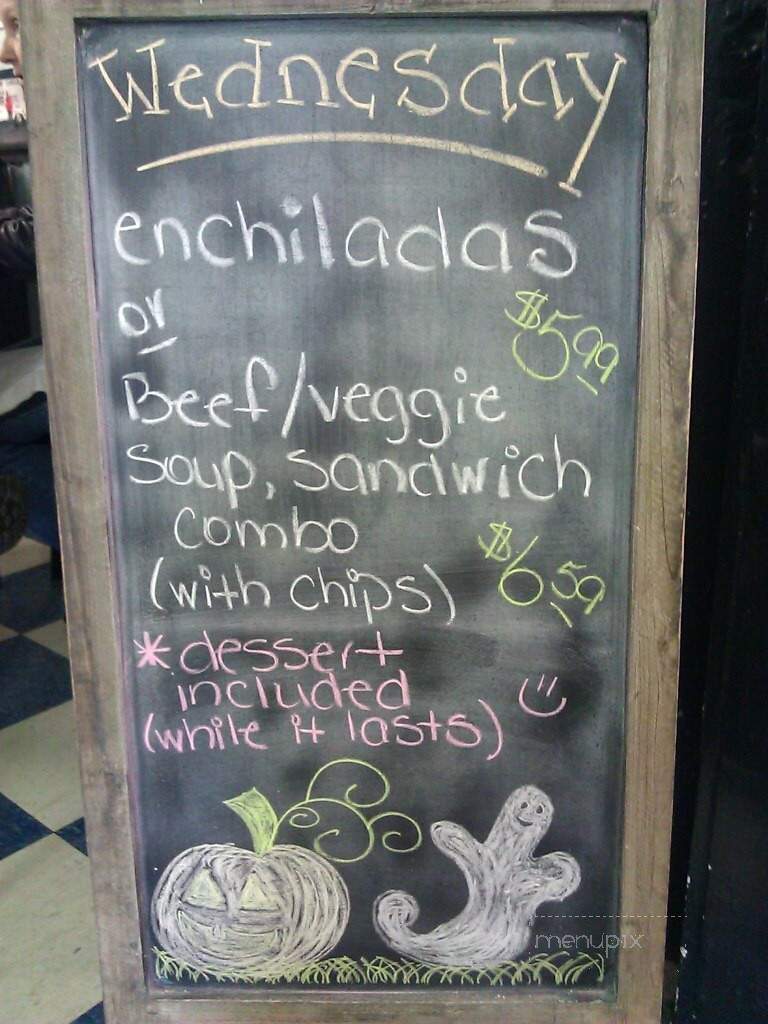 Wednesday
enchiladas
or
$5.99
Beef/veggie
Soup, Sandwich
Combo
(with chips)
$6.59
*dessert
included
(while it lasts)
menupix